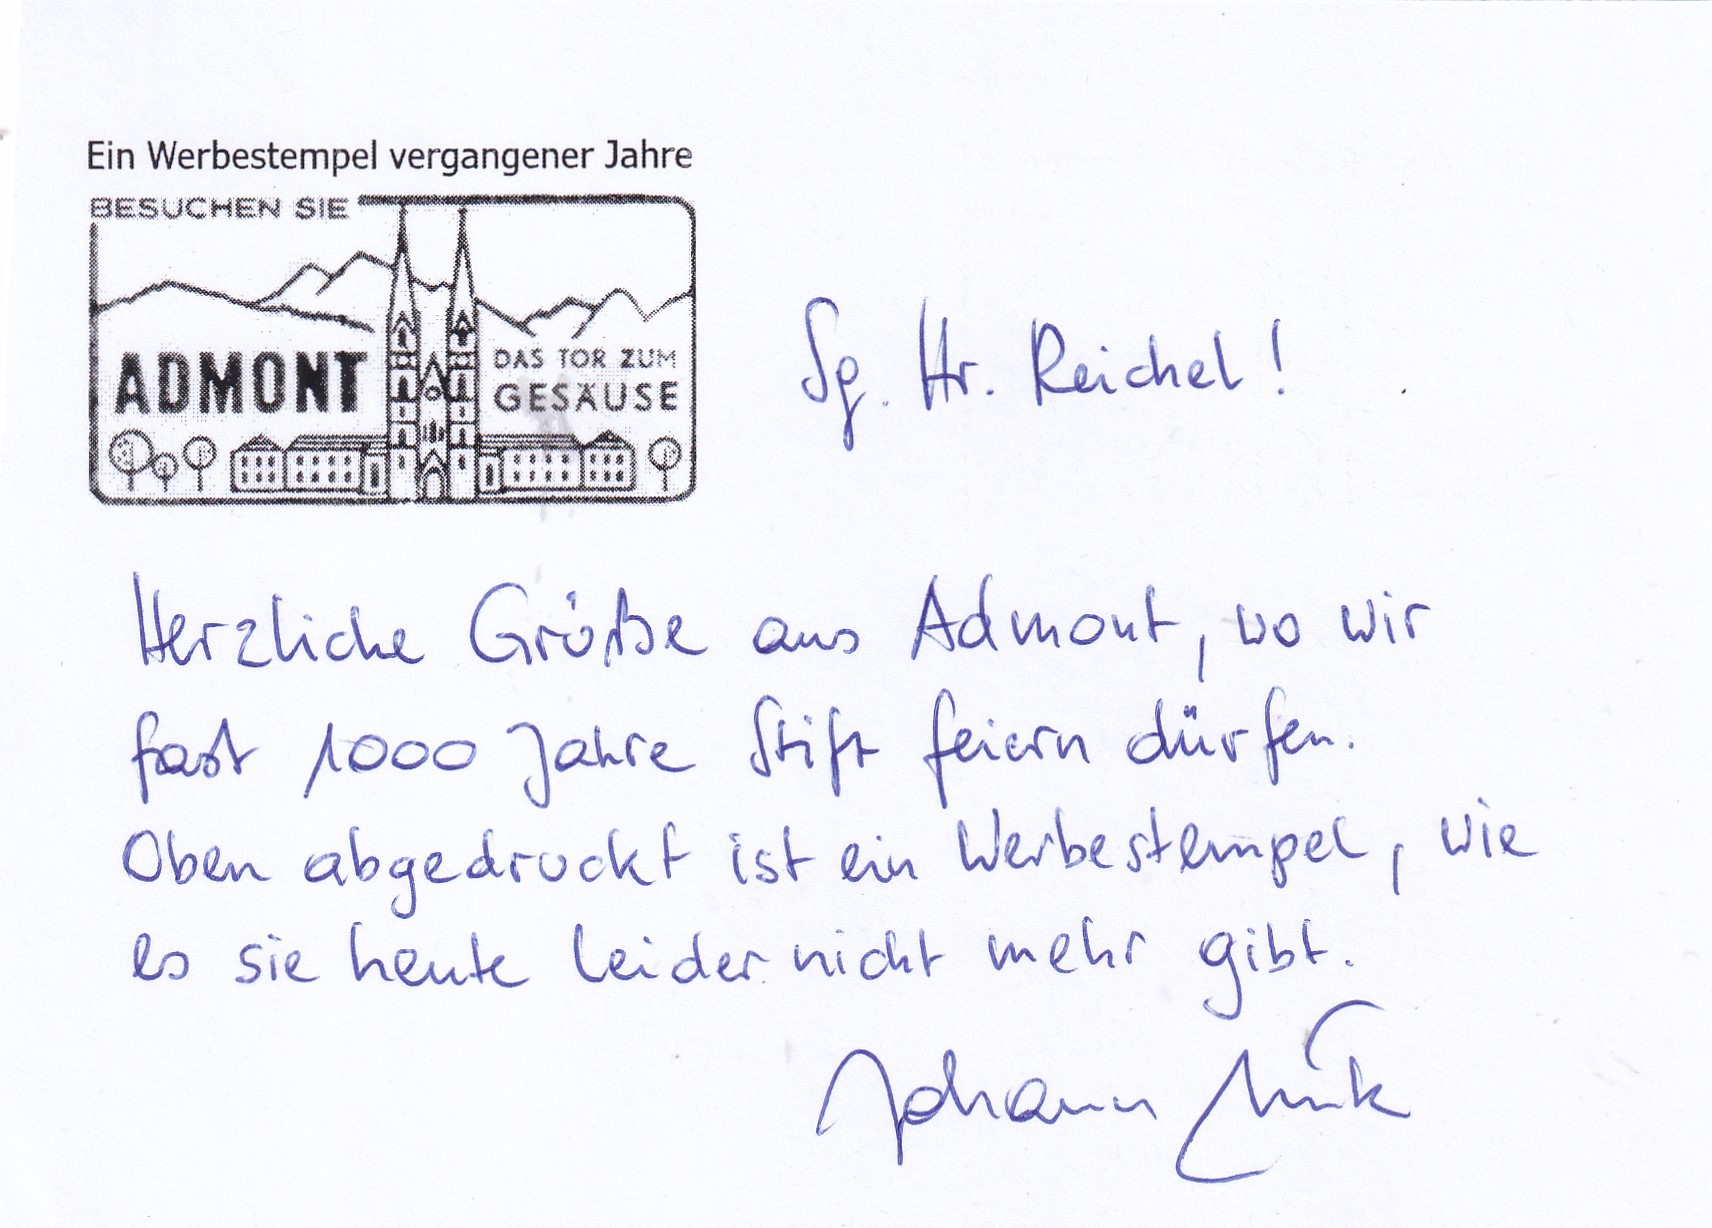 Ein Werbestempel vergangener Jahre
BESUCHEN SIE
ADMONT
DAS TOR ZUM
GESÄUSE
Sg. Hr. Reichel!
Herzliche Grüße aus Admont, wo wir
fast 1000 Jahre Stift feiern dürfen.
Oben abgedruckt ist ein Werbestempel, wie
es sie heute leider nicht mehr gibt.
Johann